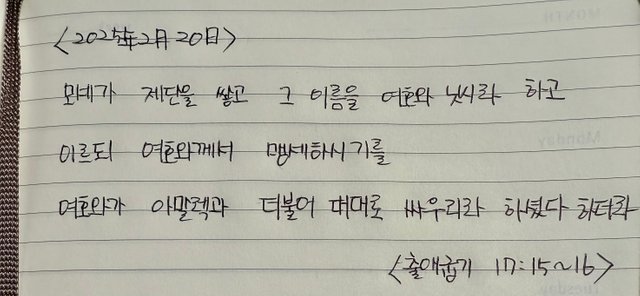 <2025年2月20日>
모세가 제단을 쌓고 그 이름을 여호와 닛시라 하고
이르되 여호와께서 맹세하시기를
여호와가 아말렉과 더불어 대대로 싸우리라 하셨다 하더라
<출애굽기 17:15~16>
MONTH
Monday
Tuesday